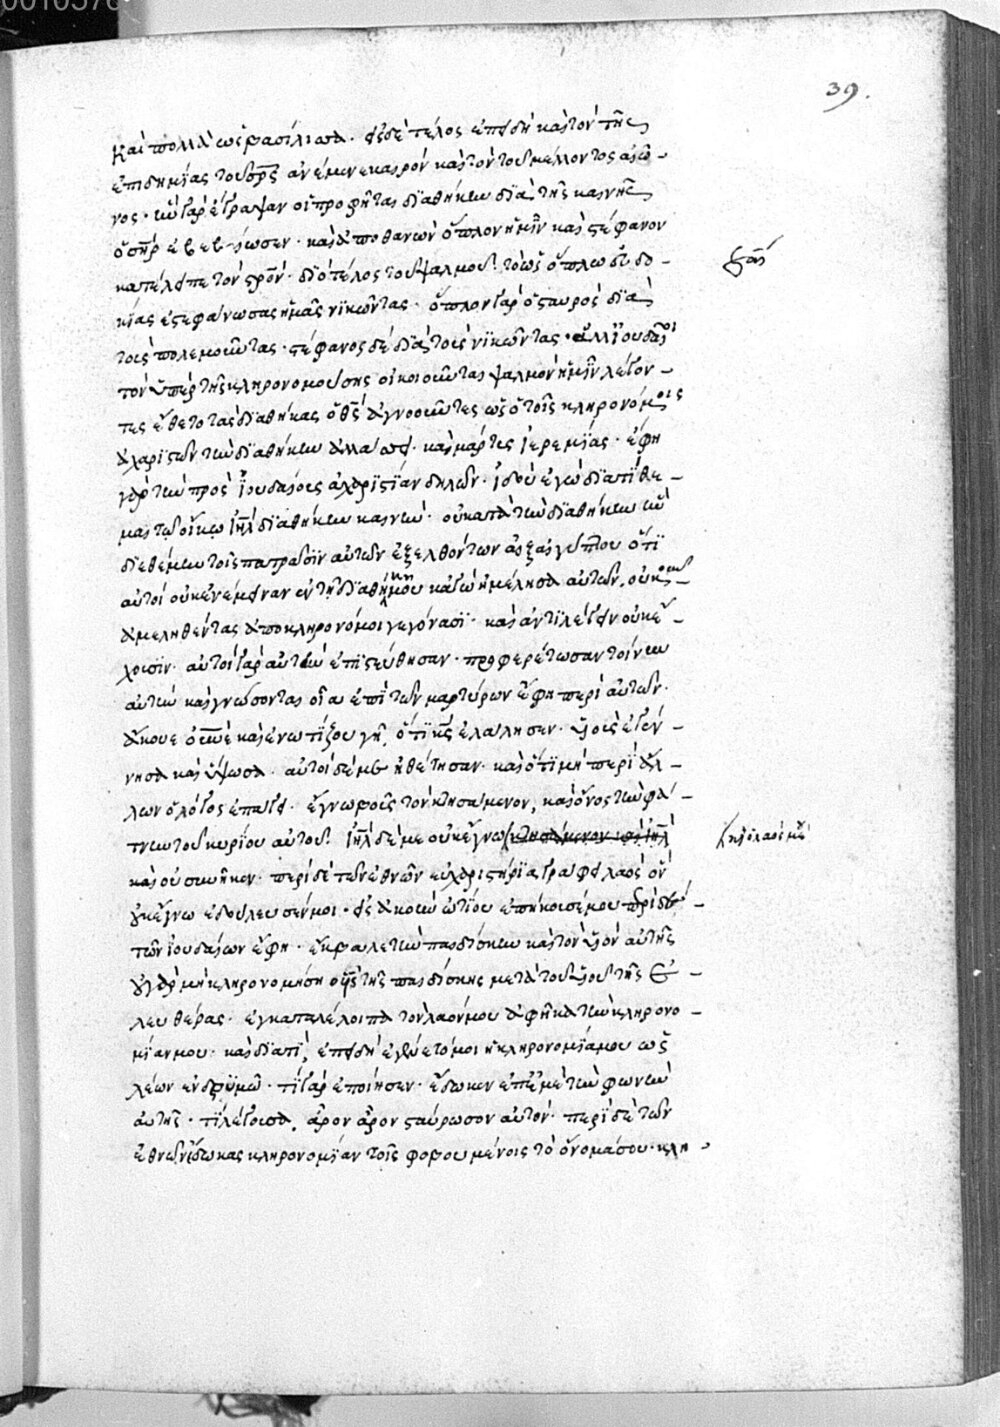 0010576
39.
καὶ πολλὰ ὡς βασίλισσα. εἰς δὲ τέλος ἐπειδὴ καὶ τὸν τῆς
ἐπιδημίας τοῦ σρς ἀνέμενε καιρὸν καὶ τὸν τοῦ μέλλοντος αἰῶ-
νος. ὧν γὰρ ἔγραψαν οἱ προφῆται διαθήκην διὰ τῆς καινῆς
ὁ σηρ ἐβεβαίωσεν. καὶ ἀποθανὼν ὅπλον ἡμῖν καὶ στέφανον
κατέλειπε τὸν σρόν. διὸ τέλος τοῦ ψαλμοῦ τὸ ὡς ὅπλω εὐδο-
κίας ἐστεφάνωσας ἡμᾶς νικῶντας. ὅπλον γὰρ ὁ σταυρὸς διὰ
τοὺς πολεμοῦντας. στέφανος δὲ διὰ τοὺς νικῶντας. ἀλλ' ἰουδαῖοι
τὸν ὑπὲρ τῆς κληρονομούσης οἰκειοῦνται ψαλμὸν ἡμῖν λέγον-
τες ἔθετο τὰς διαθήκας ὁ θς ἀγνοοῦντες ὡς ὅτοῖς κληρονόμοις
ἀχαρίστων τῶν διαθήκην ἀλλαίωσε. καὶ μάρτυς ἱερεμίας. ἔφη
γὰρ τῶν πρὸς ἰουδαίους ἀχαριστίαν δηλῶν. ἰδοὺ ἐγὼ διατίθε-
μαι τῷ οἴκῳ ιηλ διαθήκην καινήν. οὐ κατὰ τὴν διαθήκην ἣν
διεθέμην τοῖς πατράσιν αὐτῶν ἐξελθόντων ἐξ αἰγύπτου ὅτι
αὐτοὶ οὐκ ἐνέμειναν ἐν τῇ διαθήκῃ μου καγὼ ἠμέλησα αὐτῶν. οὐκοῦν
ἀμεληθέντας ἀποκληρονόμοι γεγόνασι. καὶ ἀντιλέγειν οὐκ ἔ-
χουσιν. αὐτοὶ γὰρ αὐτὴν ἐπιστεύθησαν. προφερέτωσαν τοίνυν
αὐτὴν καὶ γνώσονται οἷα ἐπὶ τῶν μαρτύρων ἔφη περὶ αὐτῶν.
ἄκουε οὐνὲ καὶ ἐνωτίζου γῆ, ὅτι κς ἐλάλησεν. υἱοὺς ἐγέν-
νησα καὶ ὕψωσα. αὐτοὶ δέ με ἠθέτησαν. καὶ ὅτι μὴ περὶ ἄλ-
λων ὁ λόγος ἐπάγει. ἔγνω βοῦς τὸν κτησάμενον, καὶ ὄνος τὴν φά-
τνην τοῦ κυρίου αὐτοῦ. ιηλ δέ με οὐκ ἔγνω κτησάμενον καὶ ιηλ
καὶ ὁ λαός με
καὶ οὐ συνῆκεν. περὶ δὲ τῶν ἐθνῶν εὐχαριστήρια γράφει λαὸς ὃν
οὐκ ἔγνω ἐδούλευσέν μοι. εἰς ἀκοὴν ὠτίου ἐπήκουσέ μου περὶ δὲ
τῶν ἰουδαίων ἔφη. ἔκβαλε τὴν παιδίσκην καὶ τὸν υἱὸν αὐτῆς
οὐ γὰρ μὴ κληρονομήση ὁ υἱὸς τῆς παιδίσκης μετὰ τοῦ υἱοῦ τῆς ἐ-
λευθέρας. ἐγκαταλέλοιπα τὸν λαόν μου ἀφῆκα τὴν κληρονο-
μίαν μου. καὶ διατί, ἐπειδὴ ἐγένετό μοι ἡ κληρονομία μου ὡς
λέων ἐν δρυμῷ. τί γὰρ ἐποίησεν. ἔδωκεν ἐπ' ἐμὲ τὴν φωνὴν
αὐτῆς. τί λέγουσα, ἆρον ἆρον σταύρωσον αὐτόν. περὶ δὲ τῶν
ἐθνῶν ἔδωκας κληρονομίαν τοῖς φοβουμένοις τὸ ὄνομά σου. κλη-